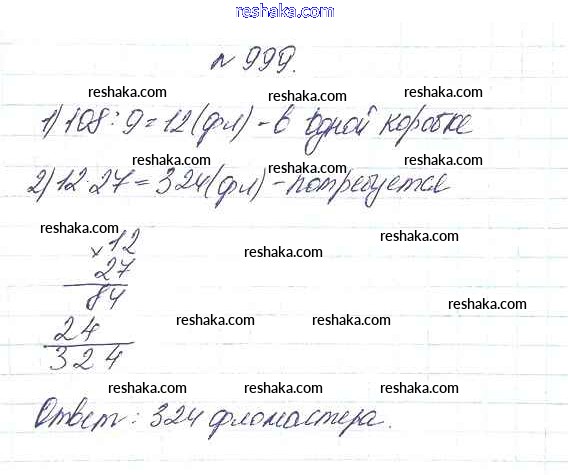 reshaka.com
№ 999.
reshaka.com reshaka.com reshaka.com
1) 108 : 9 = 12 (фл) - в одной коробке
reshaka.com reshaka.com reshaka.com
2) 12 · 27 = 324 (фл) - потребуется
reshaka.com reshaka.com reshaka.com
× 12
reshaka.com
27
84
reshaka.com
24
reshaka.com reshaka.com
324
reshaka.com reshaka.com reshaka.com
Ответ: 324 фломастера.
reshaka.com reshaka.com reshaka.com